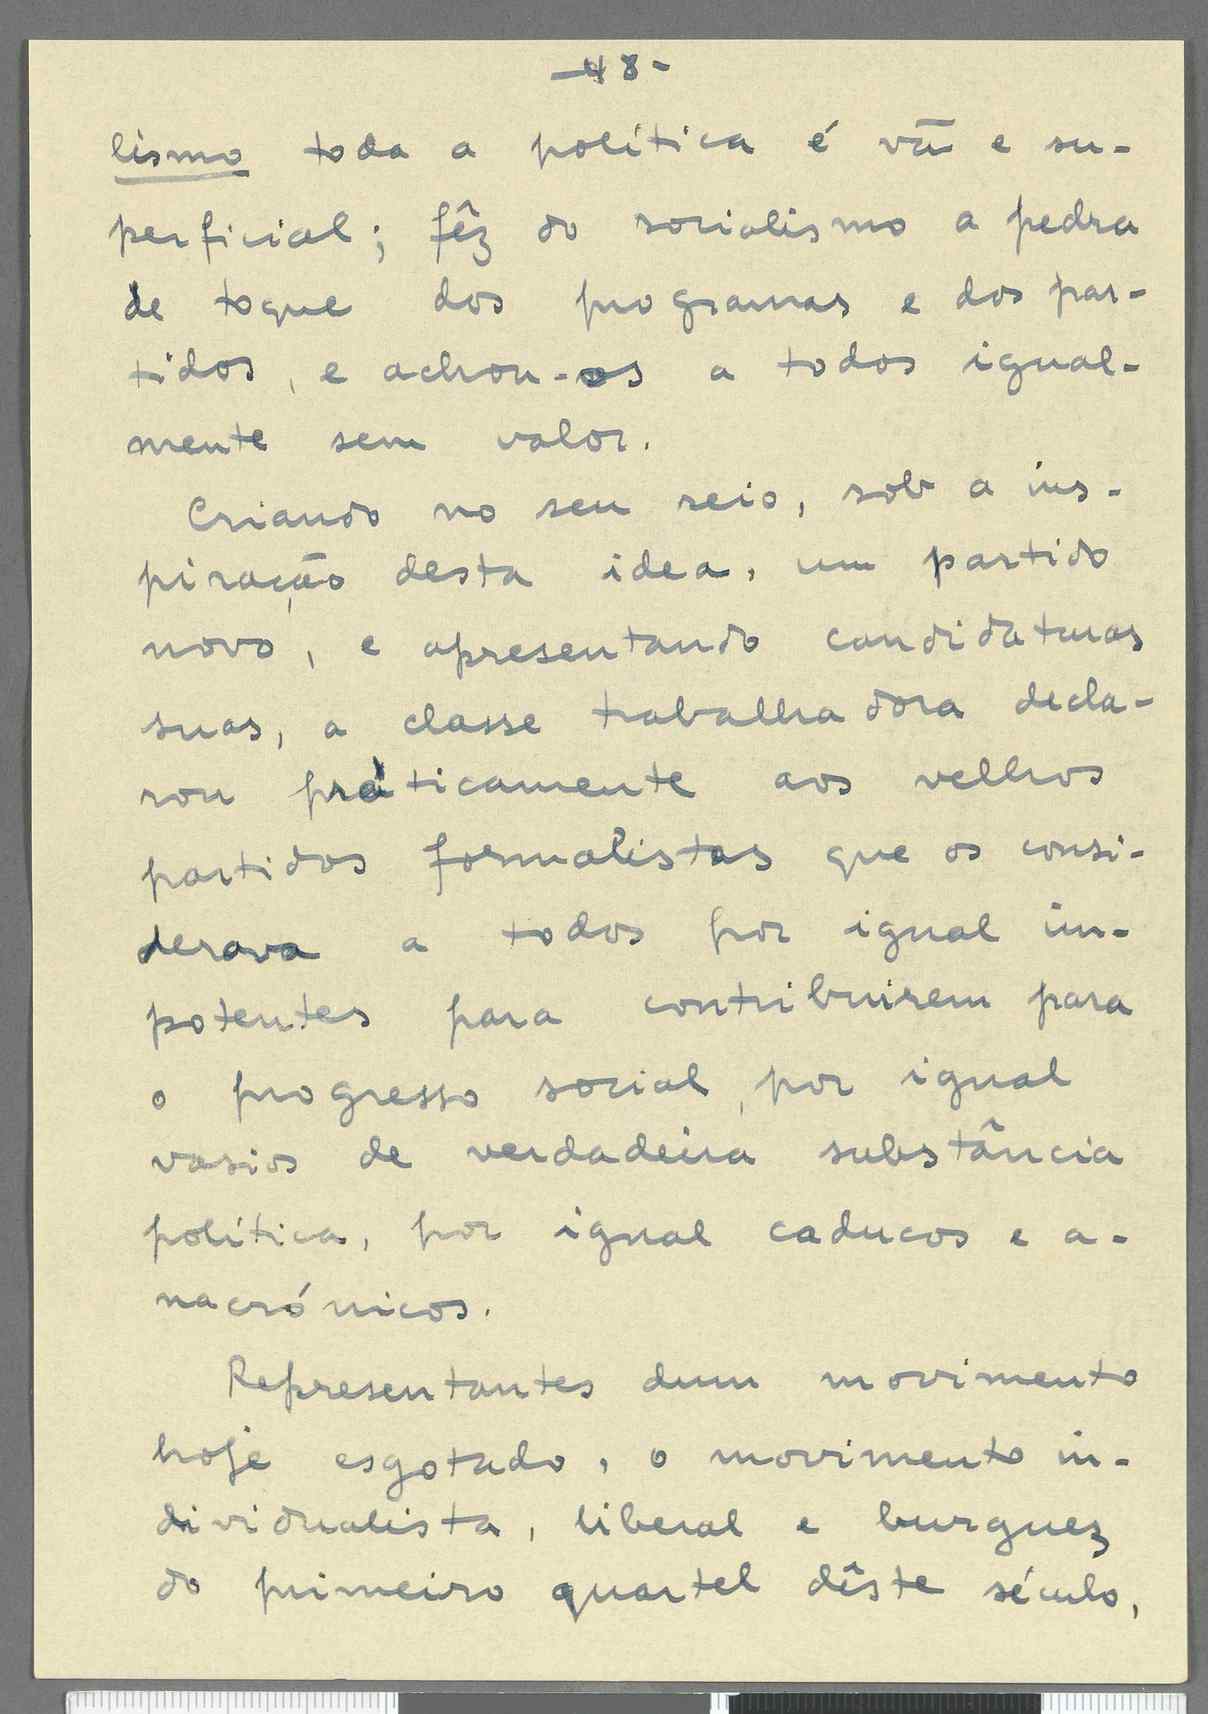 -48-
lismo toda a política é vã e su-
perficial; fêz do socialismo a pedra
de toque dos programas e dos par-
tidos, e achou-os a todos igual-
mente sem valor.
Criando no seu seio, sob a ins-
piração desta idea, um partido
novo, e apresentando candidaturas
suas, a classe trabalhadora decla-
rou pràticamente aos velhos
partidos formalistas que os consi-
derava a todos por igual im-
potentes para contribuirem para
o progresso social, por igual
vasios de verdadeira substância
política, por igual caducos e a-
nacrónicos.
Representantes dum movimento
hoje esgotado, o movimento in-
dividualista, liberal e burguez
do primeiro quartel dêste século,